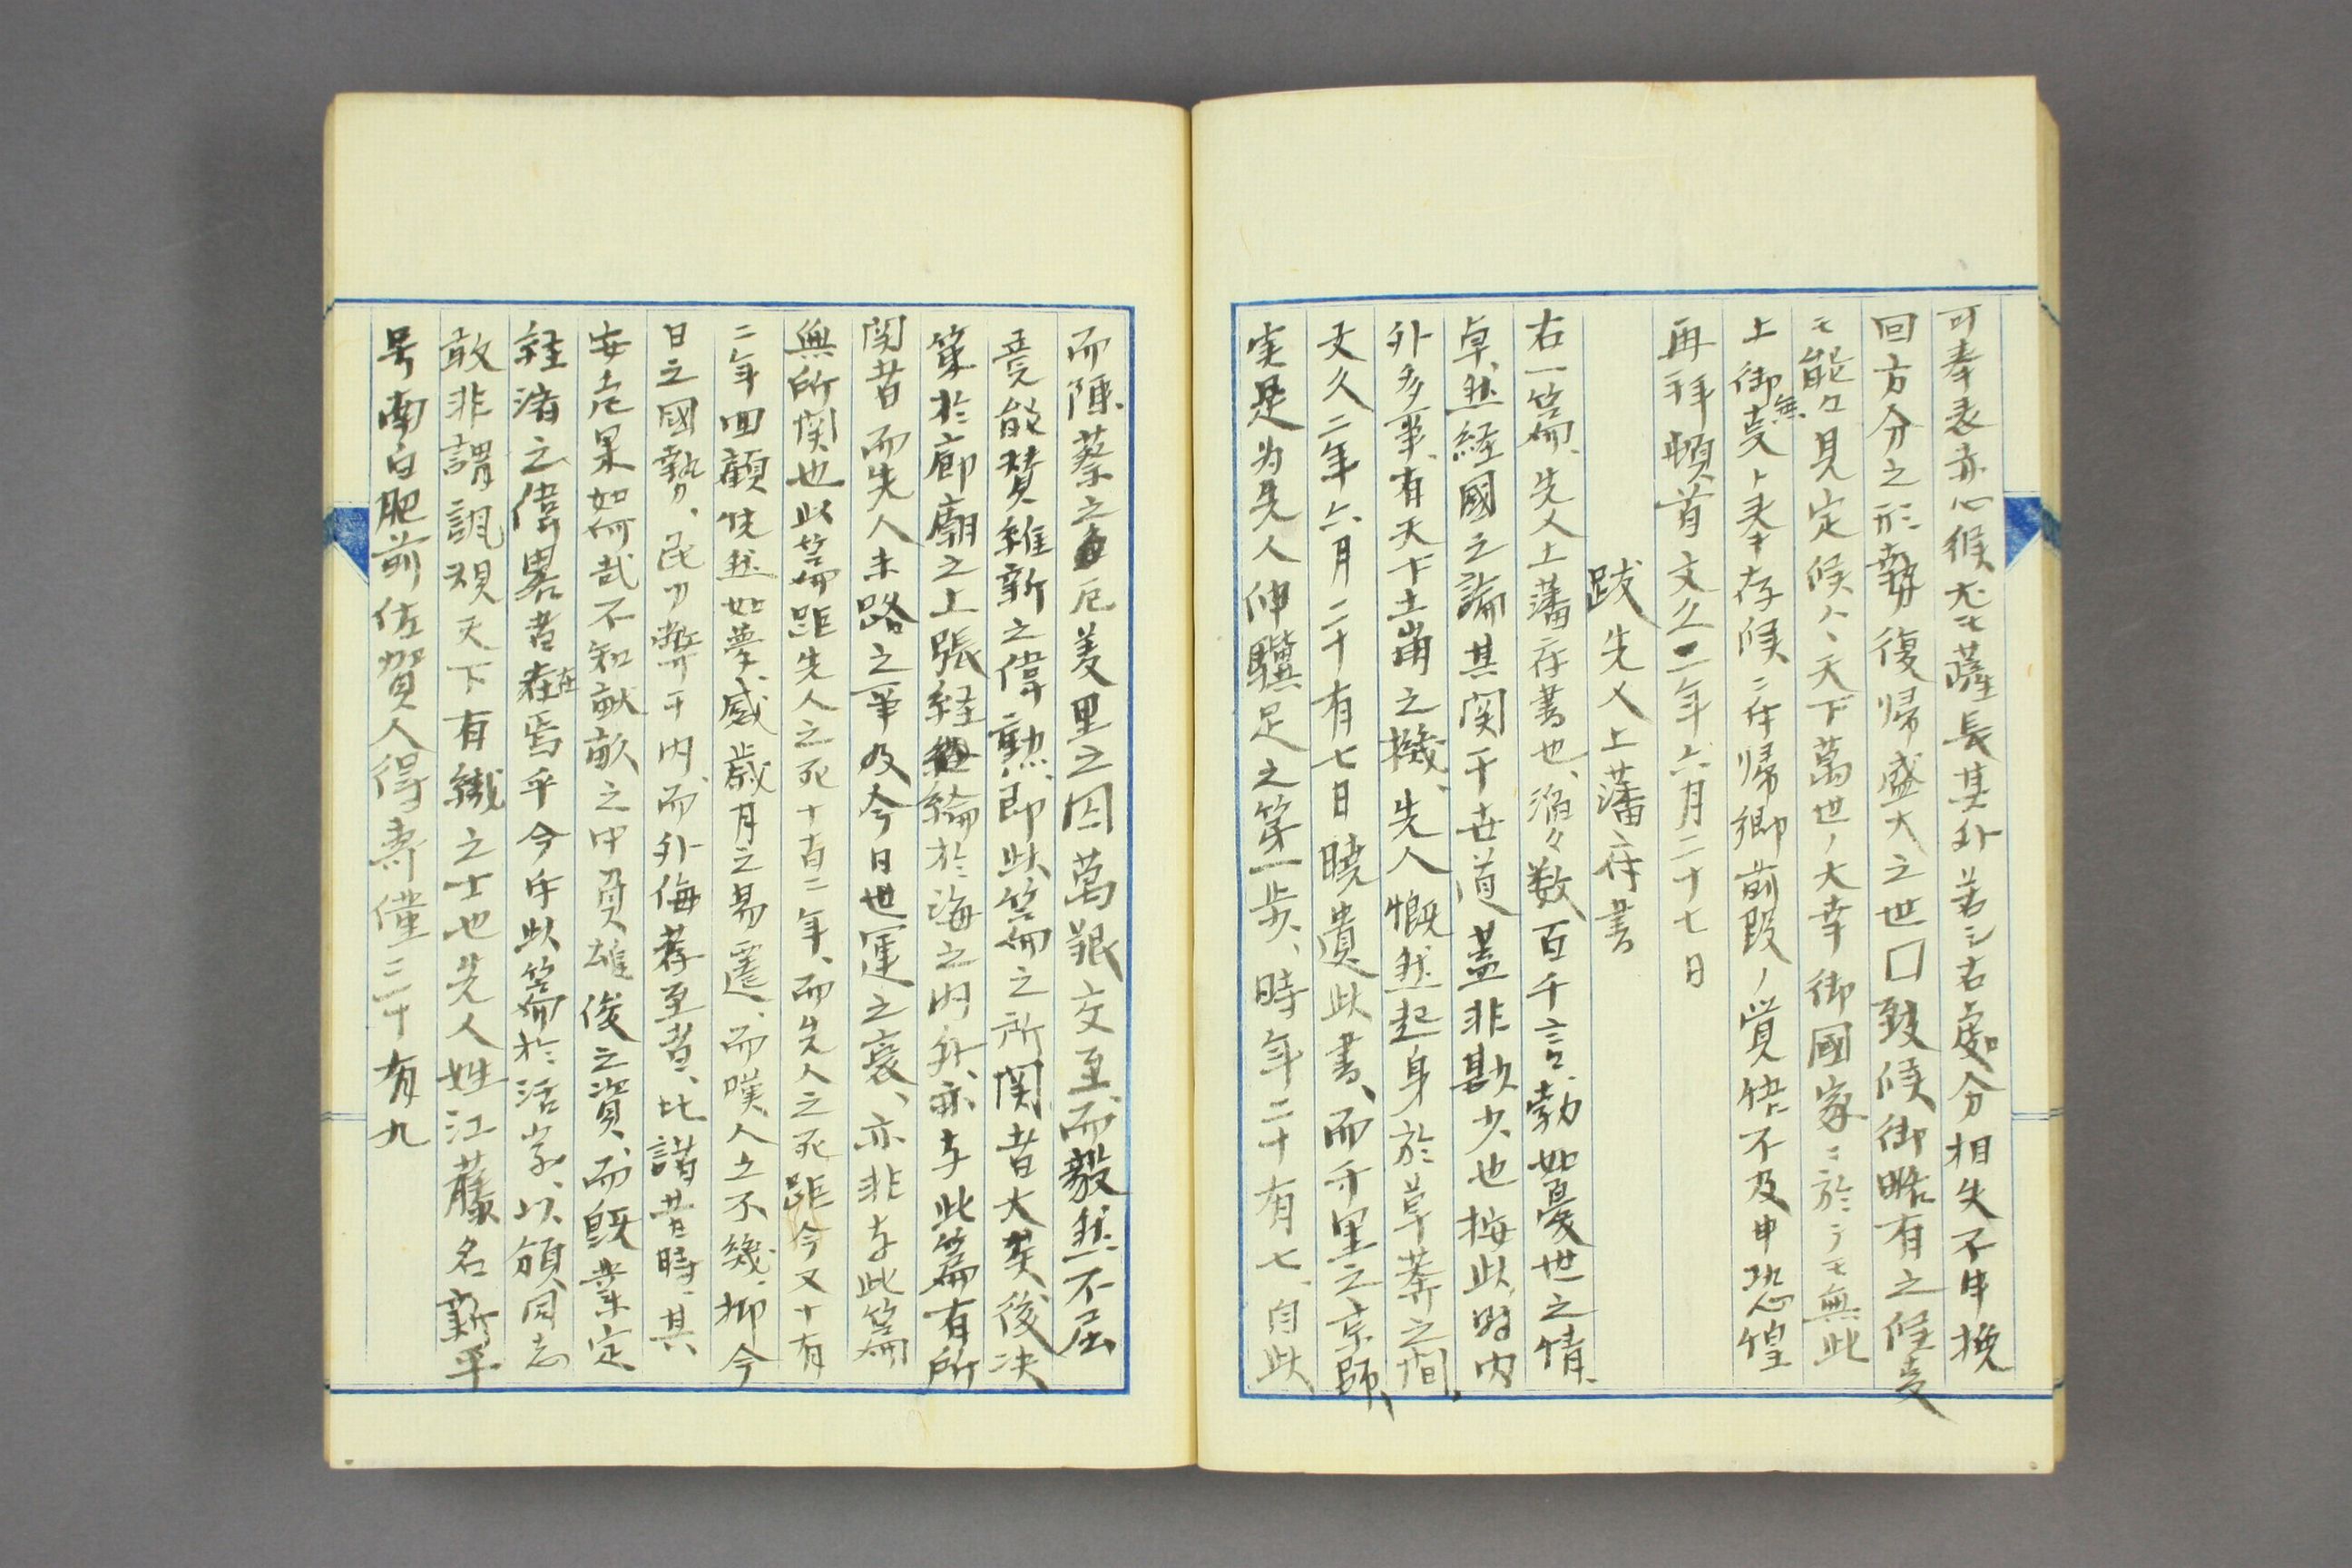 可奉表亦心候尤モ薩長其外若シ右處分相失不申挽
回方分之形勢復帰盛大之世口致候御略有之候亥
モ能々見定候ハヽ天下萬世ノ大幸御國家ニ於ラモ無此
上御無亥ト奉存候ニ存帰郷前段ノ覚悟不及申恐惶
再拜頓首文久二年六月二十七日
跋先人上藩府書
右一篇、先人上藩府書也、滔々数百千言、勃如憂世之情、
卓然経國之論其関于世道蓋非尠少也按此時内
外多事、有天下土崩之機、先人慨然起身於草莽之間、
文久二年六月二十有七日暁遺此書、而千里之京師、
実是为先人伸驥足之第一歩、時年二十有七、自此
而陳蔡之厄羑里之囚萬艱交至、而毅然不屈
竟能賛維新之偉勲、即此篇之所関者大矣、後决
策於廊廟之上張経綸於海之内外、亦与此篇有所
関者而先人末路之筆及今日世運之衰、亦非与此篇
無所関也此篇距先人之死十有二年、而先人之死距今又十有
二年回顧恍然如夢、感歳月之易遷、而嘆人之不幾、抑今
日之國勢、民力弊于内、而外侮荐至者、比諸昔時、其
安危果如何哉不知畎畝之中負雄俊之資、而既業定
経済之偉畧者在焉乎今斤此篇於活字、以頒同志
敢非謂諷規天下有識之士也先人姓江藤名新平
号南白肥前佐賀人得寿僅三十有九